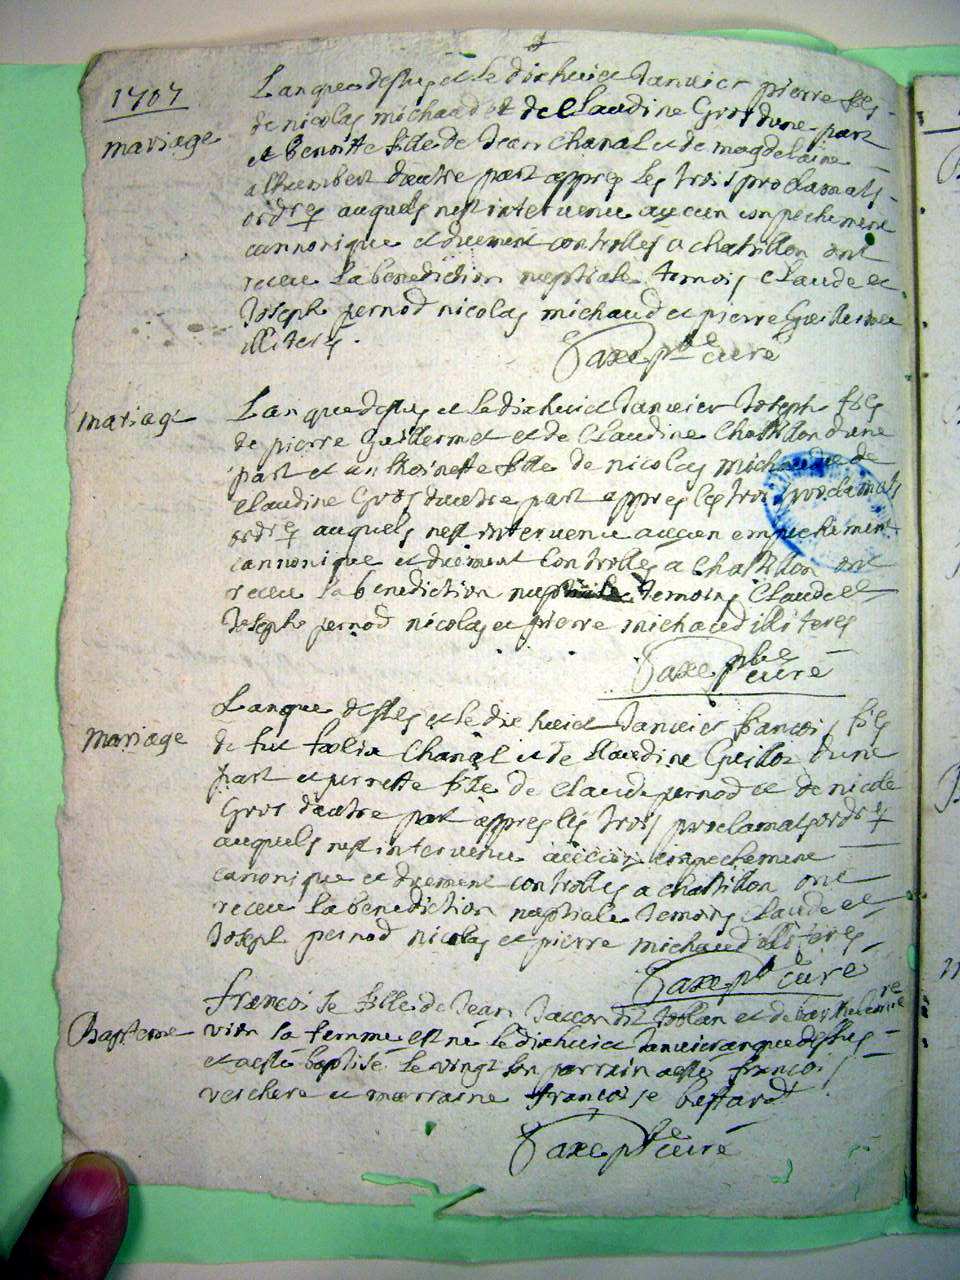 1707
mariage
Lan que dessus et Le dixhuict Janvier pierre fils
de nicolas michaud et de Claudine Gros dune part
et benoitte fille de Jean Chanal et de magdelaine
alhumbert dautre part appres Les trois proclamats
ordres auquels nest intervenu aucun empechement
cannonique et duement controlles a chatillon ont
receu La benediction nuptiale temois Claude et
Joseph pernod nicolas michaud et pierre Guillermet
illiteres.
Saxe pbre curé
mariage
Lan que dessus et Le dixhuict Janvier Joseph fils
de pierre Guillermet et de Claudine Chatillon dune
part et anthoinette fille de nicolas michaud et de
Claudine Gros dautre part appres les trois proclamats
ordres auquels nest intervenu aucun empechement
cannonique et duement Controlles a Chatillon ont
receu la benediction nuptiale temoins Claude et
Joseph pernod nicolas et pierre michaud illiteres
Saxe pbre curé
mariage
Lan que dessus et le dix huict Janvier francois fils
de fut Chanal et de Claudine Guillot dune
part et pernette fille de Claude pernod et de nicole
Gros dautre part appres les trois proclamats ordres
auquels nest intervenu aucun empechement
canonique et duement controlles a chatillon ont
receu La benediction nuptiale temoins Claude et
Joseph pernod nicolas et pierre michaud illiteres
Saxe pbre curé
Bapteme
francoise fille de Jean Jaccon dit et de barthelemie
sa femme est né le dixhuict Janvier an que dessus
et a esté baptisé le vingt son parrain a esté francois
verchere et marraine francoise bessard
Saxe pbre curé